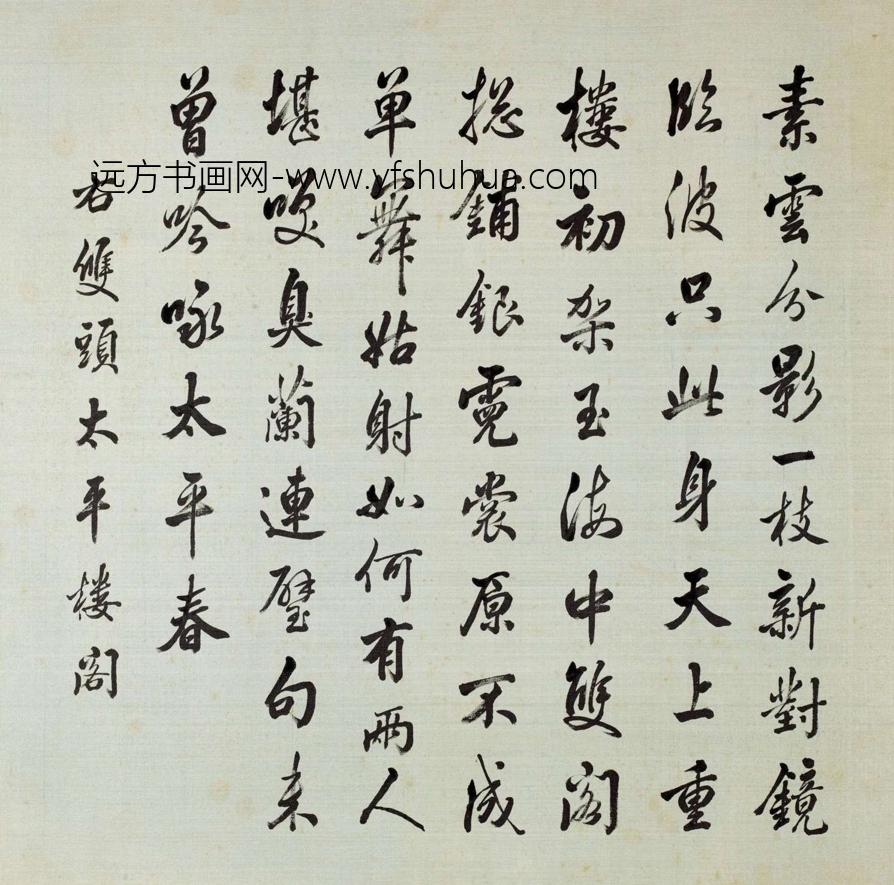 素雲分影一枝新對鏡
臨波只此身天上重
樓初架玉海中雙閣
捴鋪銀霓裳原不成
单舞姑射如何有兩人
堪咲臭蘭連璧句未
曾吟咏太平春
右雙頭太平樓閣
远方书画网-www.yfshuhua.com